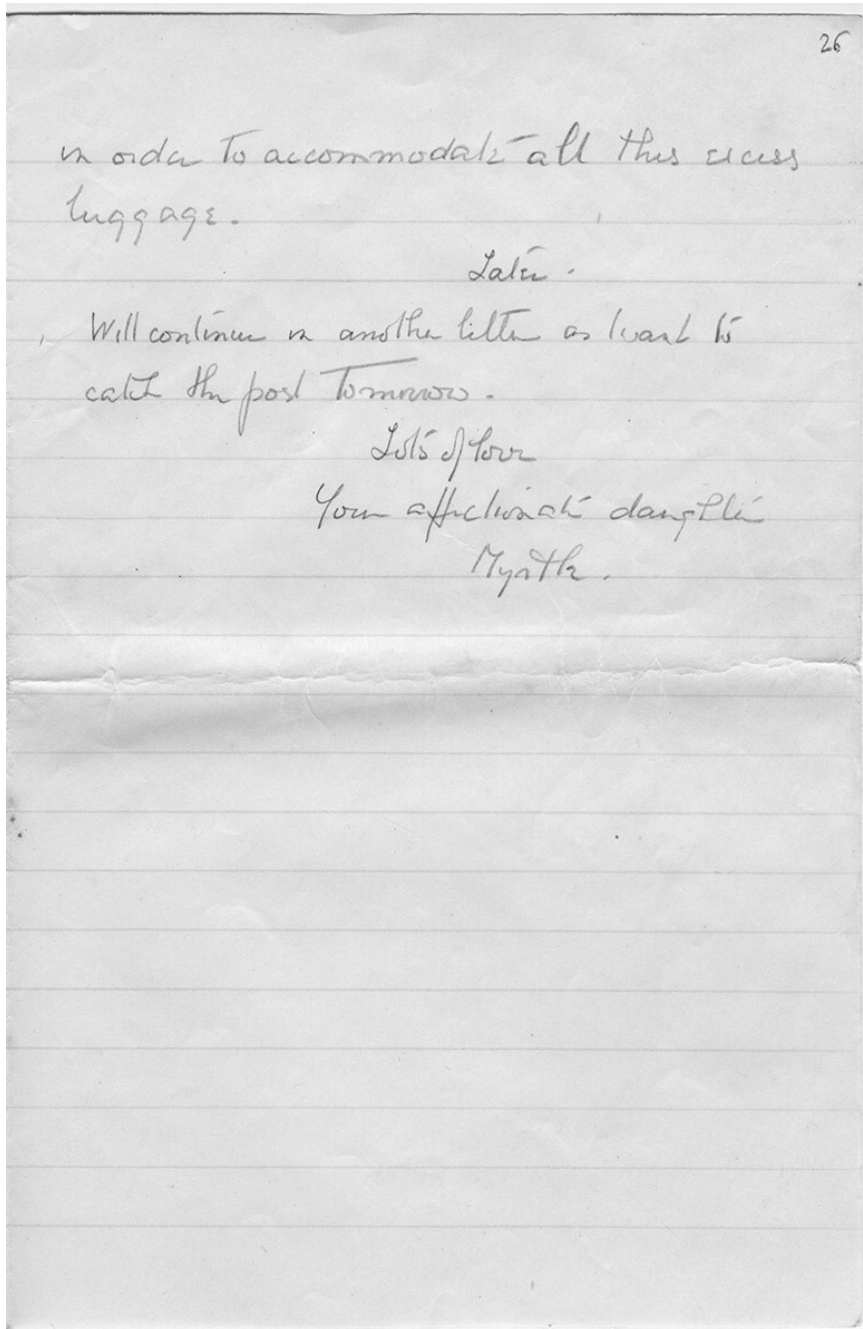 26
in order to accommodate all this excess
luggage.
Later.
Will continue in another letter as I want to
catch the post tomorrow.
Lots of love
Your affectionate daughter
Myrtle.